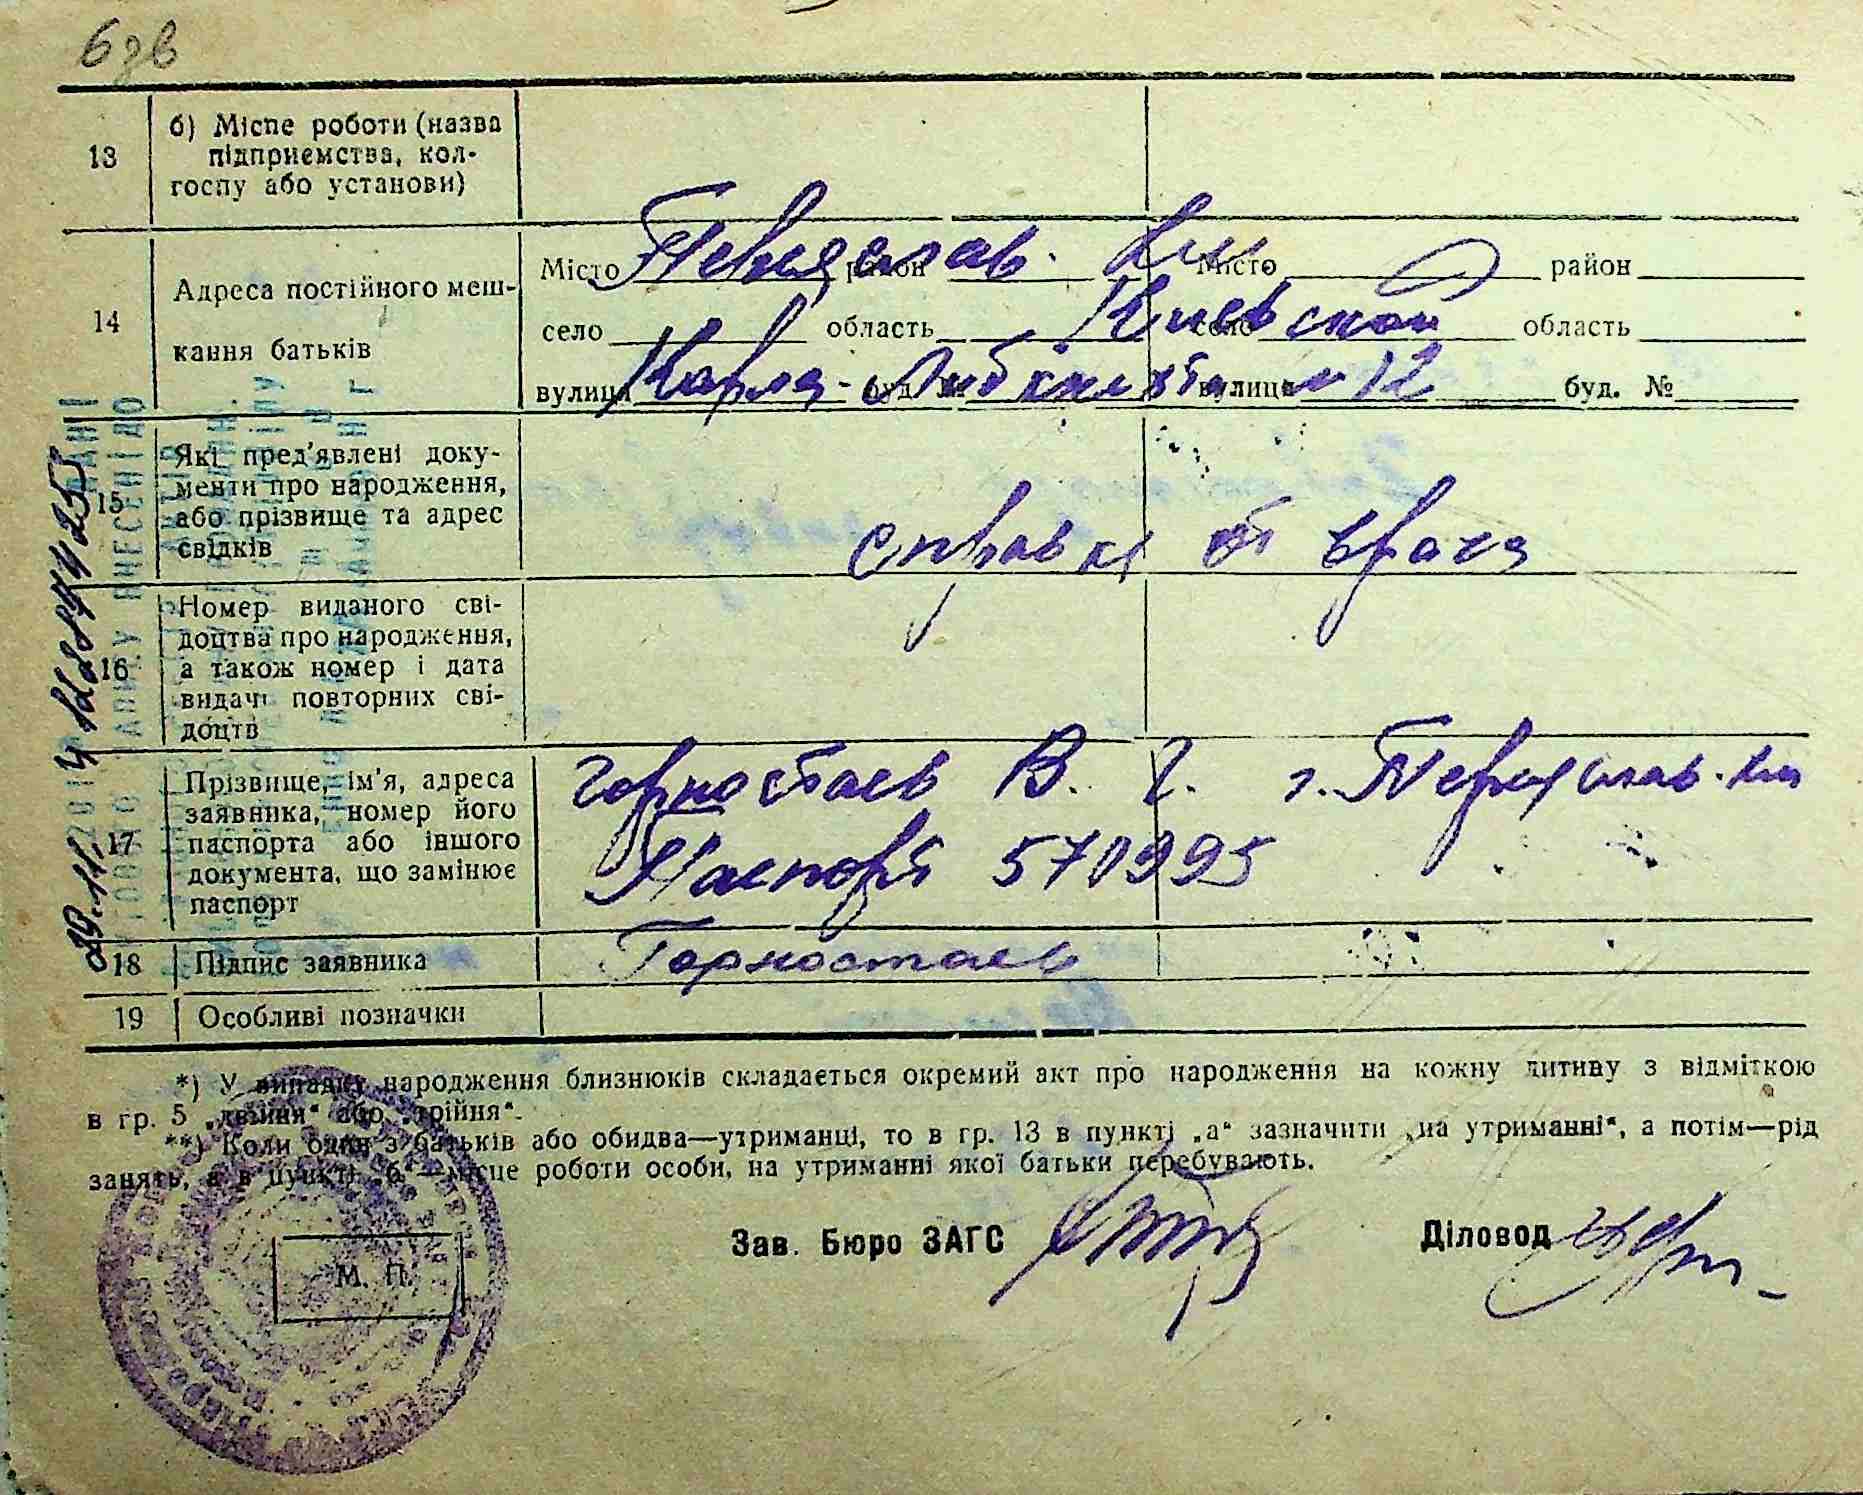 6зв
13 б) Місце роботи (назва
підприємства, кол-
госпу або установи)
14 Адреса постійного меш-
кання батьків
Місто Переяслав. Хм. район Місто район
село область Киевской село область
вулиця Карла-Либкнехта № 12 буд. № вулиця буд. №
15 Які пред'явлені доку-
менти про народження,
або прізвище та адрес
свідків
справка от врача
16 Номер виданого сві-
доцтва про народження,
а також номер і дата
видачі повторних сві-
доцтв
17 Прізвище, ім'я, адреса
заявника, номер його
паспорта або іншого
документа, що замінює
паспорт
Горностаев В. Г. г. Переяслав. Хм
Паспорт 570995
18 Підпис заявника Горностаев
19 Особливі позначки
*) У випадку народження близнюків складається окремий акт про народження на кожну дитину з відміткою
в гр. 5 „двійня“ або „трійня“.
**) Коли один з батьків або обидва—утриманці, то в гр. 13 в пункті „а“ зазначити „на утриманні“, а потім—рід
занять, а в пункті „б“—місце роботи особи, на утриманні якої батьки перебувають.
Зав. Бюро ЗАГС Діловод
М. П.